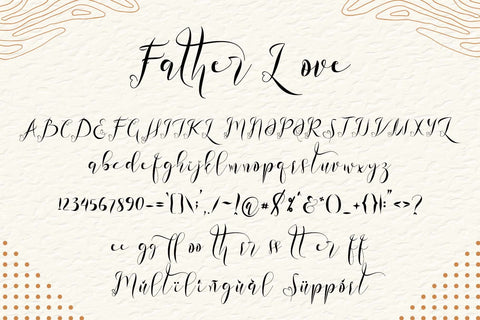 Father Love
ABCDEFGHIJKLMNOPQRSTUVWXYZ
abcdefghijklmnopqrstuvwxyz
1234567890-=[]\;',./~!@#$%^&*()_+{}|:"<>?
ee gg ff oo th sr ss tt er ff
Múltilingùàl Süppóst